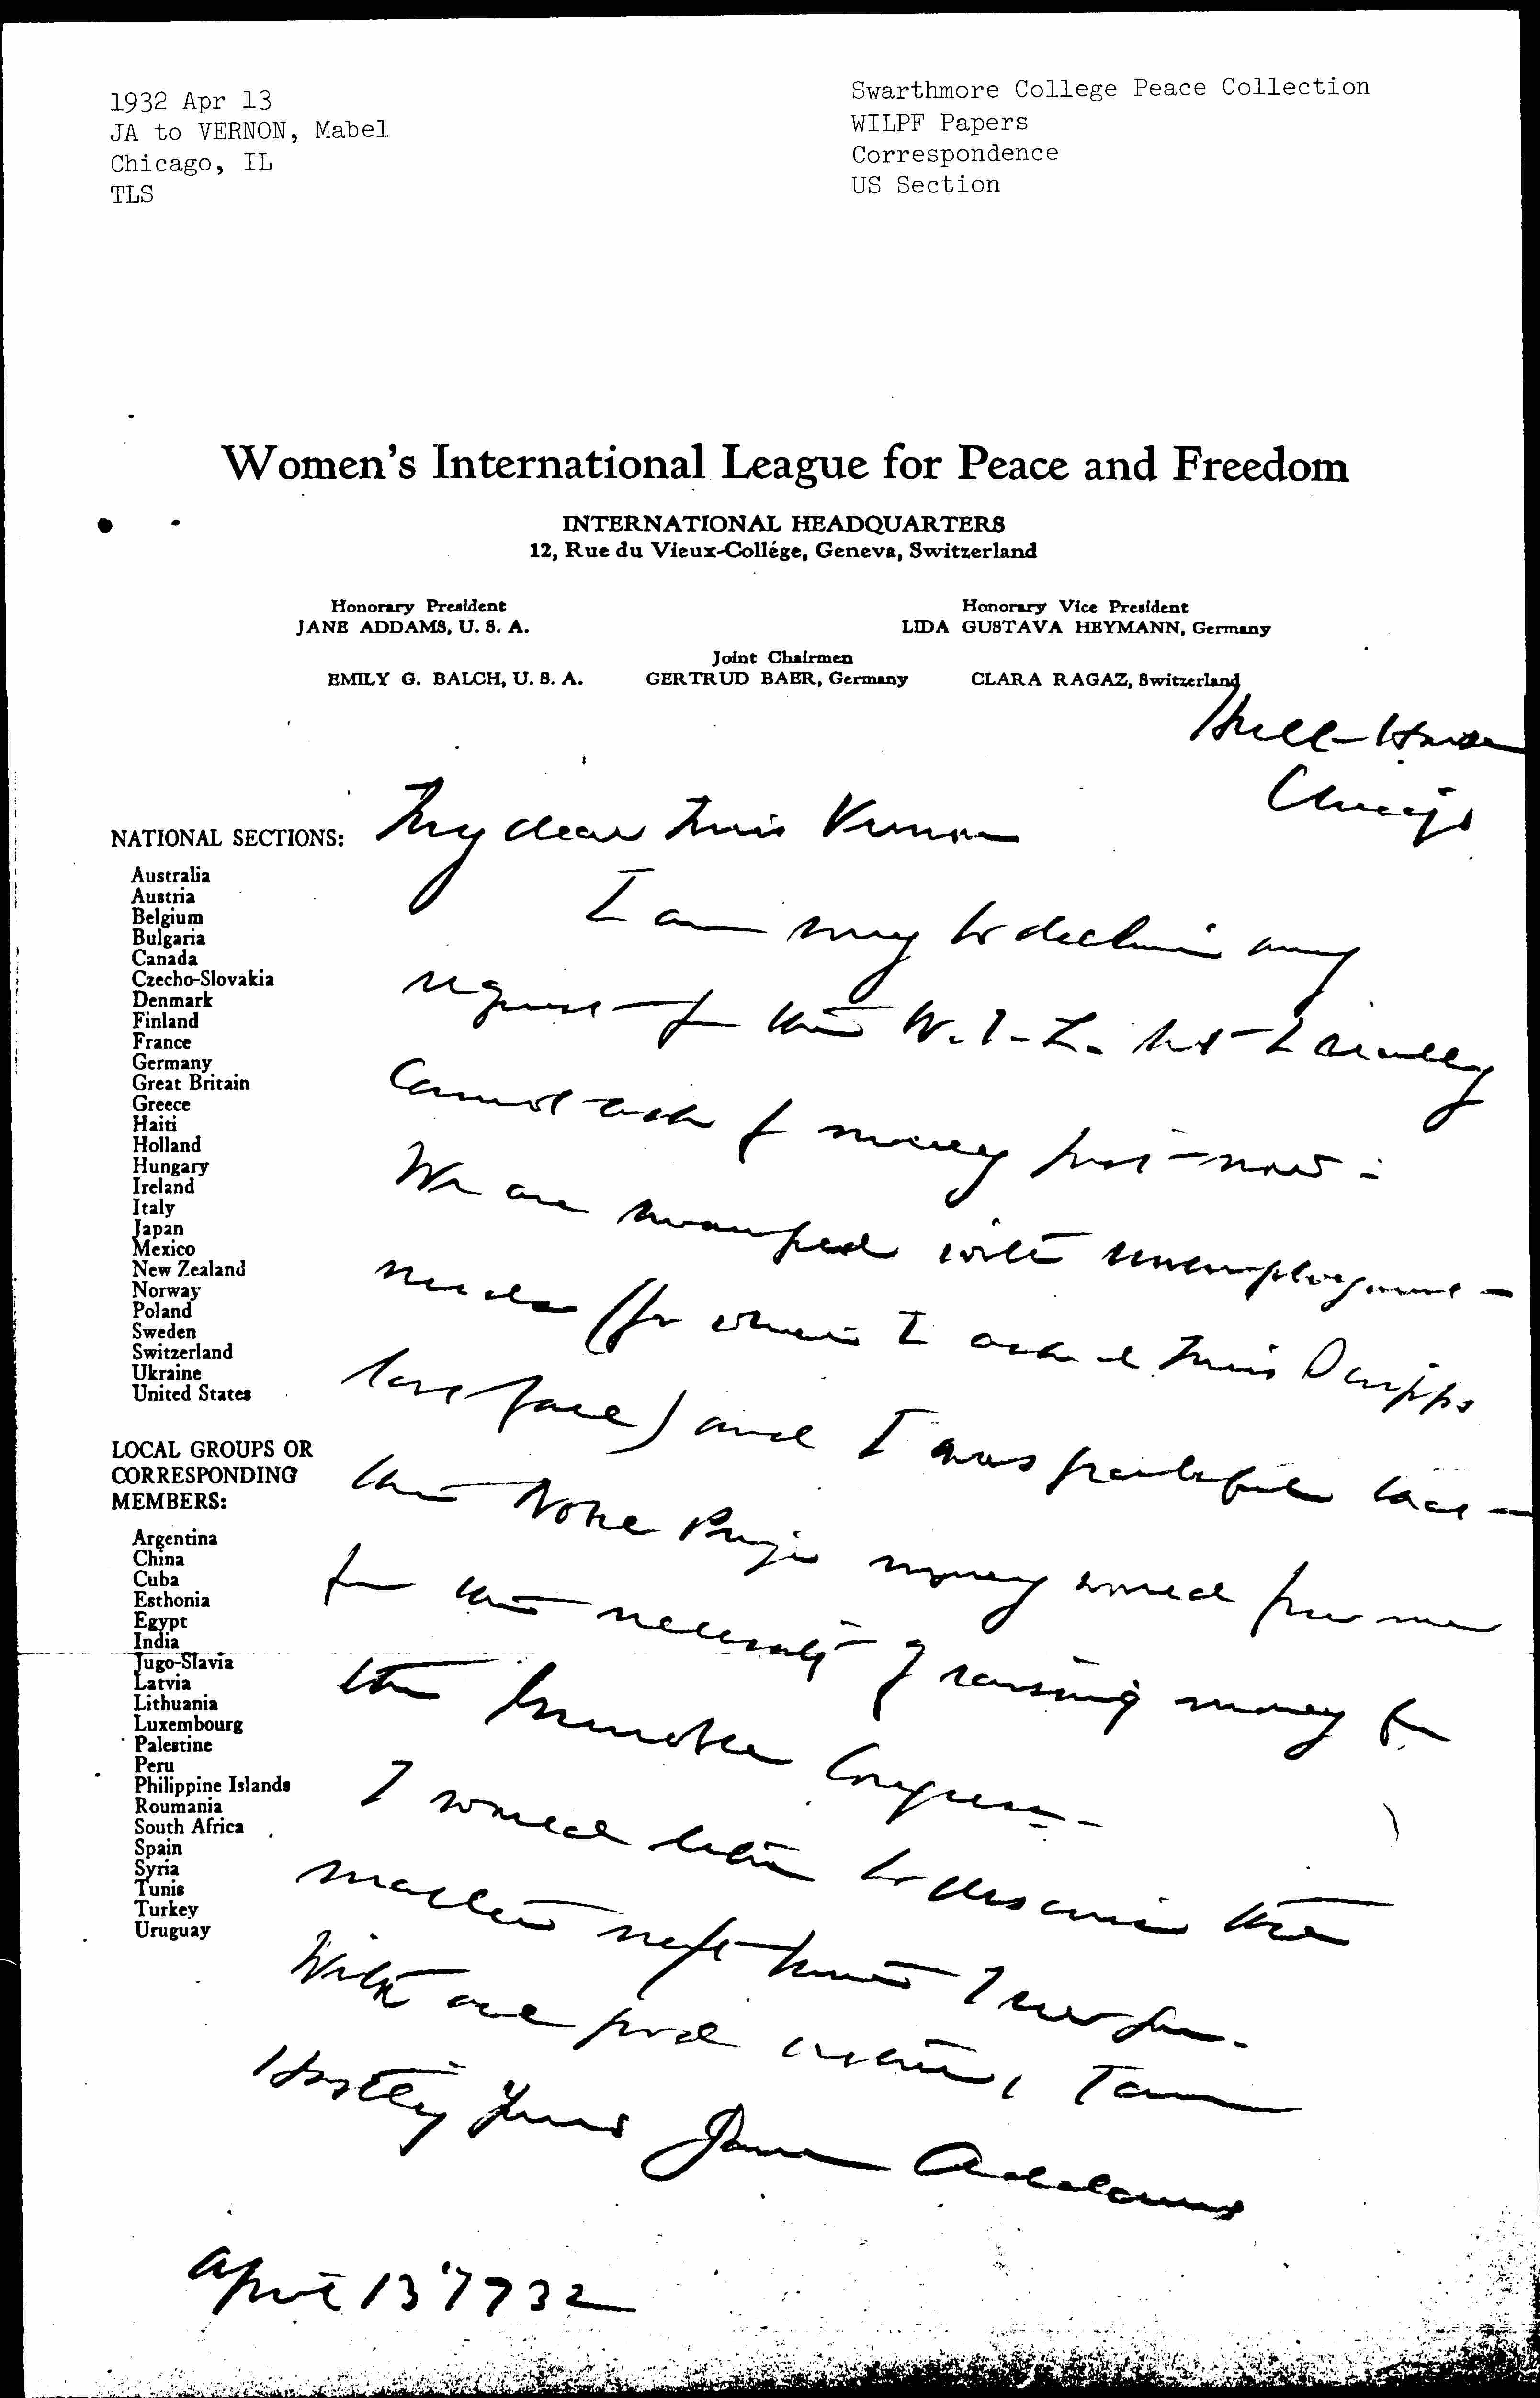 1932 Apr 13
JA to VERNON, Mabel
Chicago, IL
TLS
Swarthmore College Peace Collection
WILPF Papers
Correspondence
US Section
Women's International League for Peace and Freedom
INTERNATIONAL HEADQUARTERS
12, Rue du Vieux-Collége, Geneva, Switzerland
Honorary President
JANE ADDAMS, U. S. A.
Honorary Vice President
LIDA GUSTAVA HEYMANN, Germany
Joint Chairmen
EMILY G. BALCH, U. S. A. GERTRUD BAER, Germany CLARA RAGAZ, Switzerland
Hull-House
Chicago
My dear Miss Vernon
I am sorry to decline any
request of the W.I.L. but I really
cannot ask for money just now -
We are swamped with unemployment -
needs (for whom I asked Miss Scripps
last) and I was grateful that
the Nobel Prize money would free me
from the necessity of raising money for
the Grenoble Congress -
I would like to discuss the
matter next time I see you.
With all good wishes, I am
Hastily yours Jane Addams
April 13" 1932
NATIONAL SECTIONS:
Australia
Austria
Belgium
Bulgaria
Canada
Czecho-Slovakia
Denmark
Finland
France
Germany
Great Britain
Greece
Haiti
Holland
Hungary
Ireland
Italy
Japan
Mexico
New Zealand
Norway
Poland
Sweden
Switzerland
Ukraine
United States
LOCAL GROUPS OR
CORRESPONDING
MEMBERS:
Argentina
China
Cuba
Esthonia
Egypt
India
Jugo-Slavia
Latvia
Lithuania
Luxembourg
Palestine
Peru
Philippine Islands
Roumania
South Africa
Spain
Syria
Tunis
Turkey
Uruguay